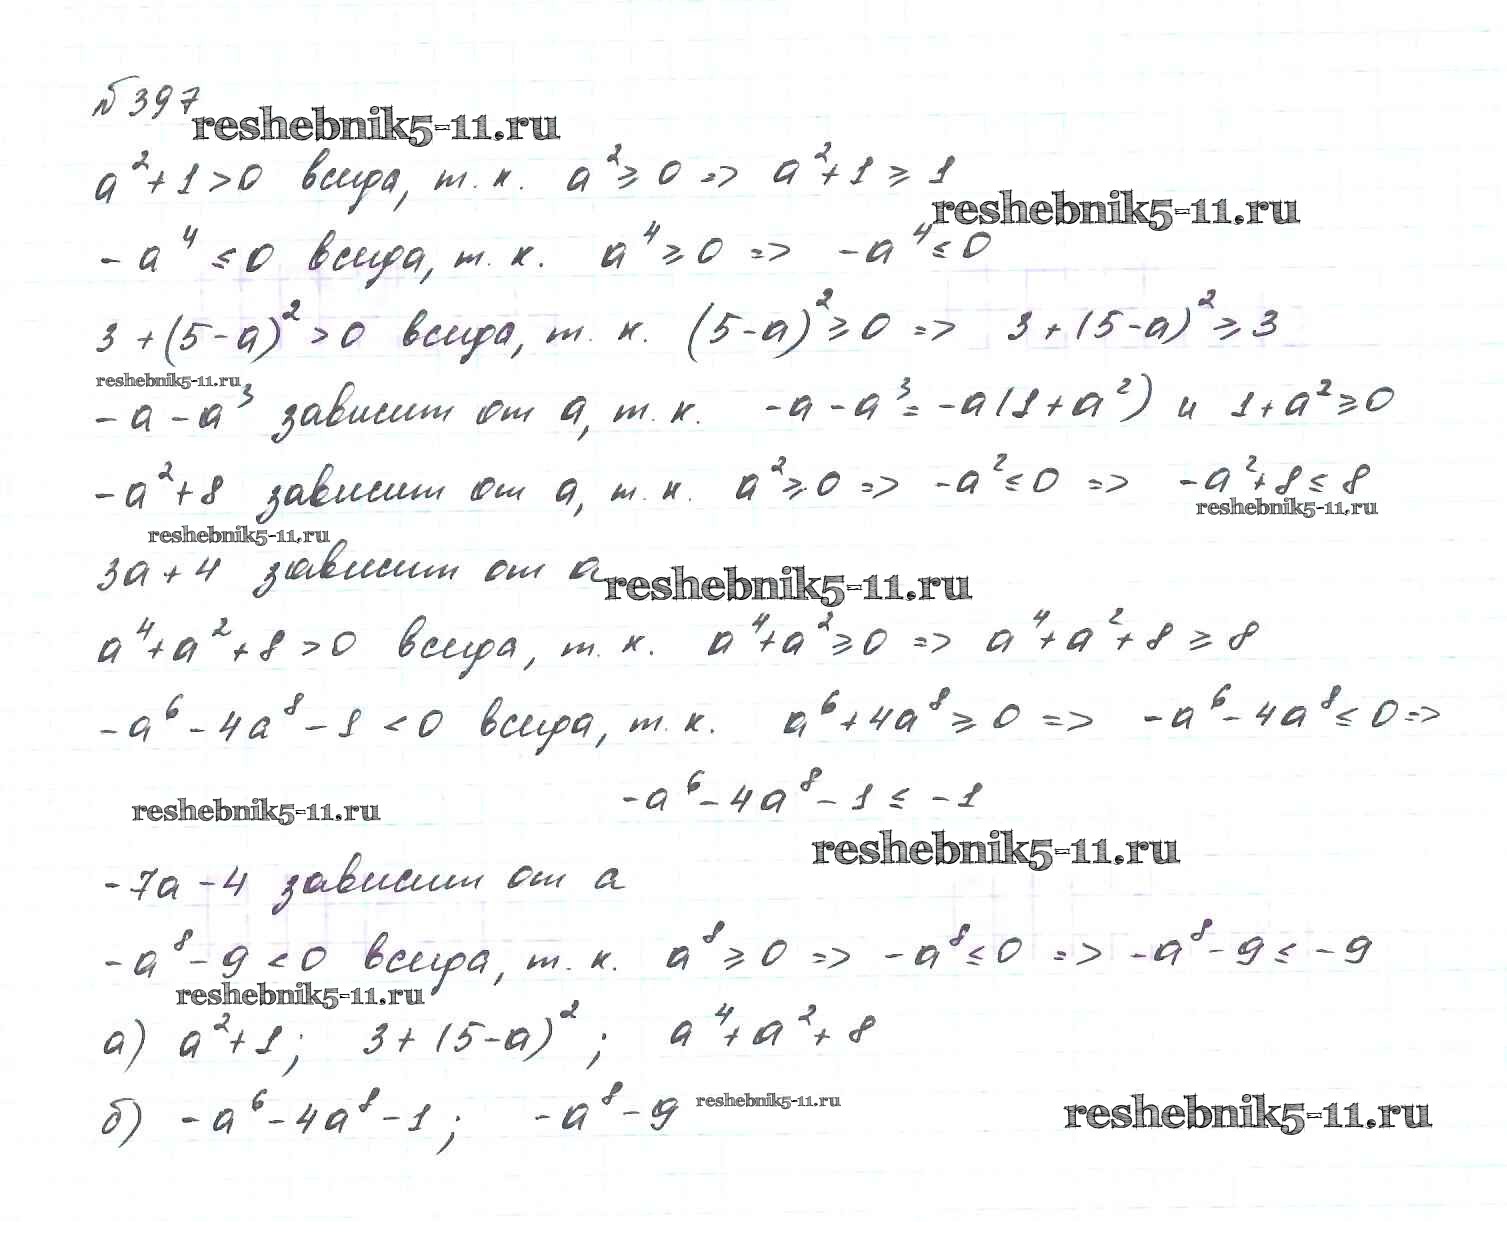 №397
reshebnik5-11.ru
a²+1>0 всегда, т. к. a²≥0 => a²+1≥1
reshebnik5-11.ru
-a⁴≤0 всегда, т. к. a⁴≥0 => -a⁴≤0
3+(5-a)²>0 всегда, т. к. (5-a)²≥0 => 3+(5-a)²≥3
reshebnik5-11.ru
-a-a³ зависит от a, т. к. -a-a³=-a(1+a²) и 1+a²≥0
-a²+8 зависит от a, т. к. a²≥0 => -a²≤0 => -a²+8≤8
reshebnik5-11.ru
reshebnik5-11.ru
3a+4 зависит от a
reshebnik5-11.ru
a⁴+a²+8>0 всегда, т. к. a⁴+a²≥0 => a⁴+a²+8≥8
-a⁶-4a⁸-1<0 всегда, т. к. a⁶+4a⁸≥0 => -a⁶-4a⁸≤0 =>
-a⁶-4a⁸-1≤-1
reshebnik5-11.ru
reshebnik5-11.ru
-7a-4 зависит от a
-a⁸-9<0 всегда, т. к. a⁸≥0 => -a⁸≤0 => -a⁸-9≤-9
reshebnik5-11.ru
а) a²+1; 3+(5-a)²; a⁴+a²+8
б) -a⁶-4a⁸-1; -a⁸-9
reshebnik5-11.ru
reshebnik5-11.ru